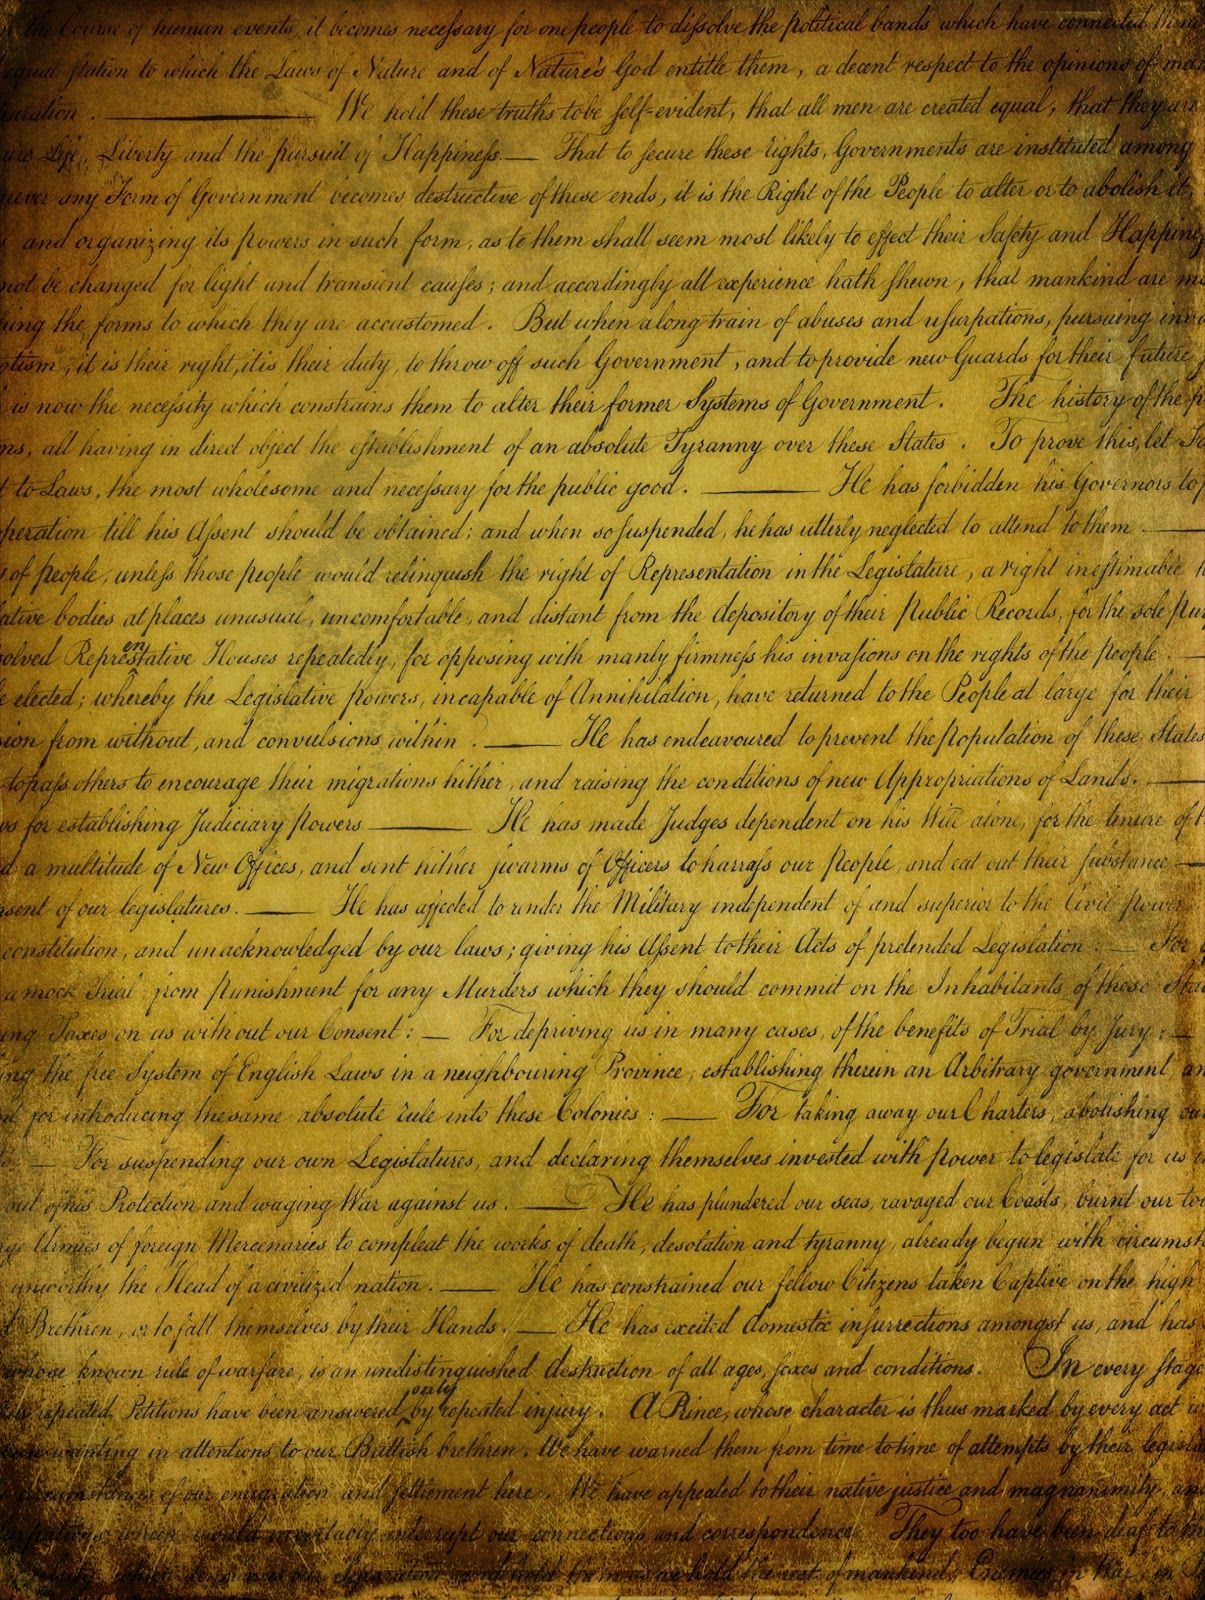 the Course of human events, it becomes neceſsary for one people to diſsolve the political bands which have connected them
equal ſtation to which the Laws of Nature and of Nature's God entitle them, a decent respect to the opinions of man
aration. — We hold these truths to be ſelf-evident, that all men are created equal, that they are
are Life, Liberty and the pursuit of Happineſs.— That to ſecure these rights, Governments are instituted among
never any Form of Government becomes destructive of these ends, it is the Right of the People to alter or to abolish it,
s and organizing its powers in such form, as to them shall seem most likely to effect their Safety and Happineſ
not be changed for light and transient cauſes; and accordingly all experience hath ſhewn, that mankind are m
hing the forms to which they are accustomed. But when a long train of abuses and uſurpations, pursuing inv
otism, it is their right, it is their duty, to throw off such Government, and to provide new Guards for their future
is now the neceſsity which constrains them to alter their former Systems of Government. The history of the p
ns, all having in direct object the eſtablishment of an absolute Tyranny over these States. To prove this, let
t to Laws, the most wholesome and neceſsary for the public good. — He has forbidden his Governors to p
peration till his Aſsent should be obtained; and when so ſuspended, he has utterly neglected to attend to them —
s of people, unleſs those people would relinquish the right of Representation in the Legislature, a right ineſtimable
lative bodies at places unusual, uncomfortable, and distant from the depository of their Public Records, for the sole pur
solved Represtative Houses repeatedly, for opposing with manly firmneſs his invaſions on the rights of the people. —
en
e elected; whereby the Legislative powers, incapable of Annihilation, have returned to the People at large for their
sion from without, and convulsions within. — He has endeavoured to prevent the population of these States
to paſs others to encourage their migrations hither, and raising the conditions of new Appropriations of Lands. —
ws for establishing Judiciary powers — He has made Judges dependent on his Will alone, for the tenure of t
d a multitude of New Offices, and sent hither swarms of Officers to harraſs our People, and eat out their ſubstance. —
nsent of our legislatures. — He has affected to render the Military independent of and superior to the Civil power.
constitution, and unacknowledged by our laws; giving his Aſsent to their Acts of pretended Legislation: — For
a mock Trial, from punishment for any Murders which they should commit on the Inhabitants of these Sta
ing Taxes on us without our Consent: — For depriving us in many cases, of the benefits of Trial by Jury: —
ing the free System of English Laws in a neighbouring Province, establishing therein an Arbitrary government, an
nt for introducing the same absolute rule into these Colonies: — For taking away our Charters, abolishing ou
ts: — For suspending our own Legislatures, and declaring themselves invested with power to legislate for us
out of his Protection and waging War against us. — He has plundered our seas, ravaged our Coasts, burnt our to
rge Armies of foreign Mercenaries to compleat the works of death, desolation and tyranny, already begun with circumst
unworthy the Head of a civilized nation. — He has constrained our fellow Citizens taken Captive on the high
d Brethren, or to fall themselves by their Hands. — He has excited domestic inſurrections amongst us, and has
whose known rule of warfare, is an undistinguished destruction of all ages, ſexes and conditions. In every ſtage
repeated Petitions have been answered by repeated injury. A Prince, whose character is thus marked by every act
only
wanting in attentions to our Brittish brethren. We have warned them from time to time of attempts by their legisla
circumstances of our emigration and ſettlement here. We have appealed to their native justice and magnanimity, an
which would inevitably interrupt our connections and correspondence. They too have been deaf to the
which denounces our Separation, and hold them, as we hold the rest of mankind, Enemies in War, in